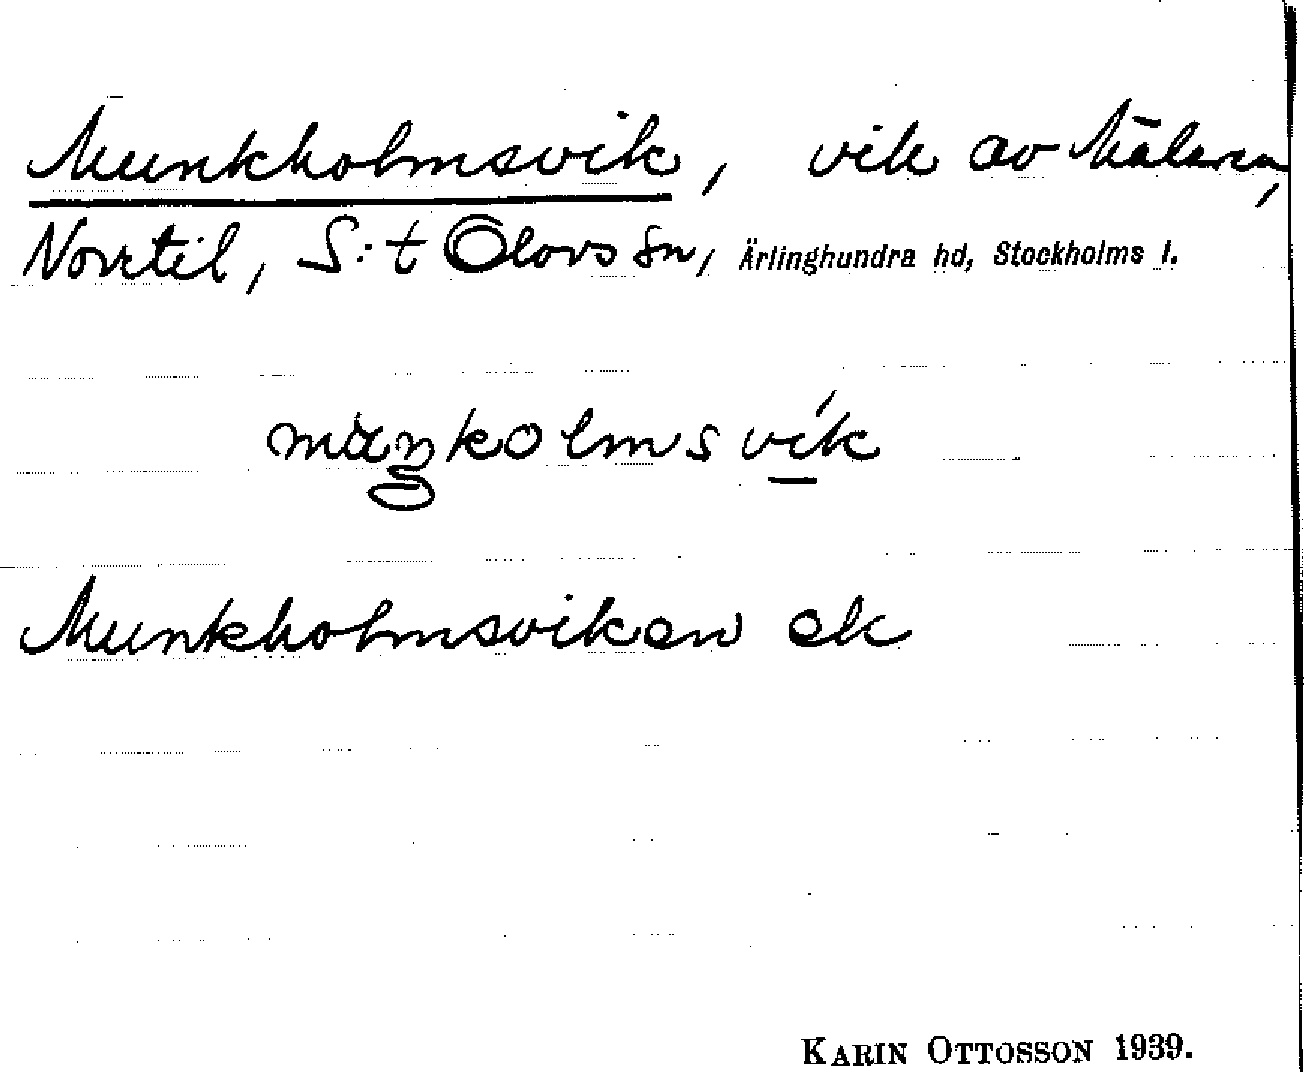 Munkholmsvik, vik av Mälaren,
Norrtil, S:t Olovs sn, Ärlinghundra hd, Stockholms l.
Munkholmsviken ek
KARIN OTTOSSON 1939.